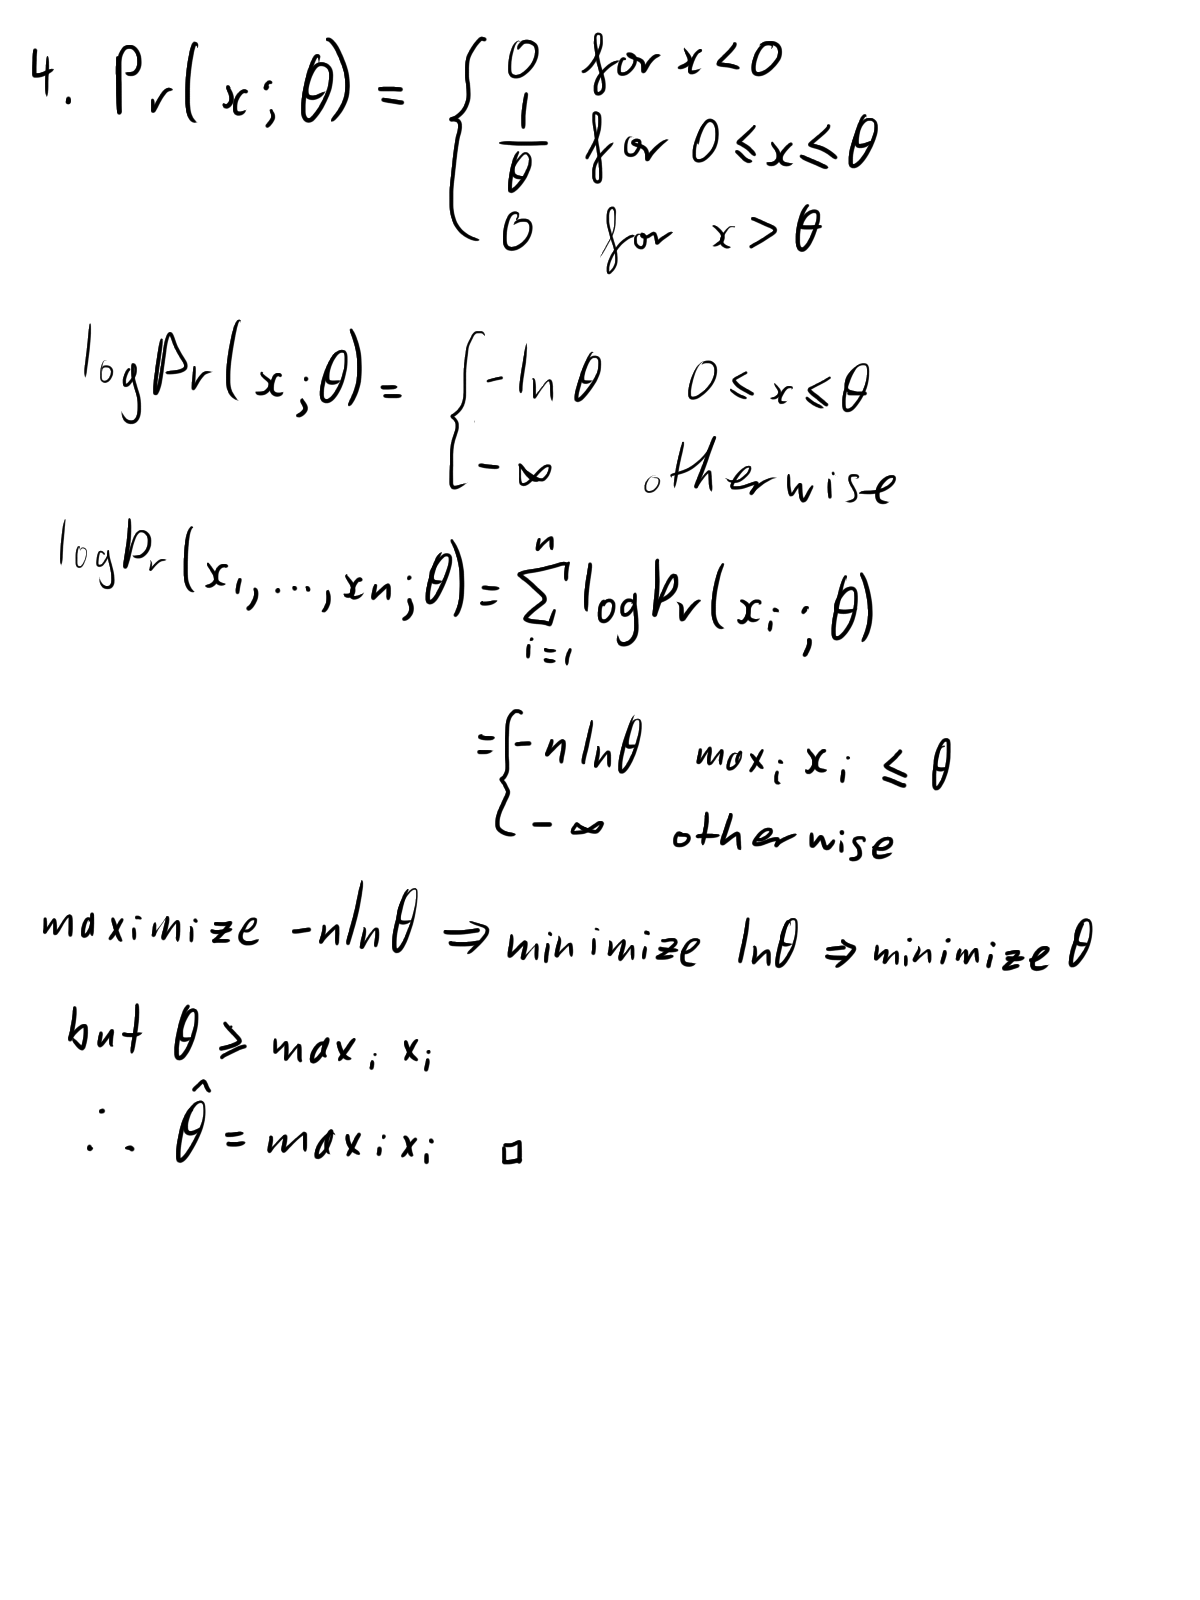 4. Pr(x; θ) = { 0 for x < 0
1/θ for 0 ≤ x ≤ θ
0 for x > θ
log Pr(x; θ) = { -ln θ 0 ≤ x ≤ θ
-∞ otherwise
log Pr(x₁, ..., xn; θ) = ∑ᵢ₌₁ⁿ log Pr(xᵢ; θ)
= { -n ln θ maxᵢ xᵢ ≤ θ
-∞ otherwise
maximize -n ln θ ⇒ minimize ln θ ⇒ minimize θ
but θ ≥ maxᵢ xᵢ
∴ θ̂ = maxᵢ xᵢ □